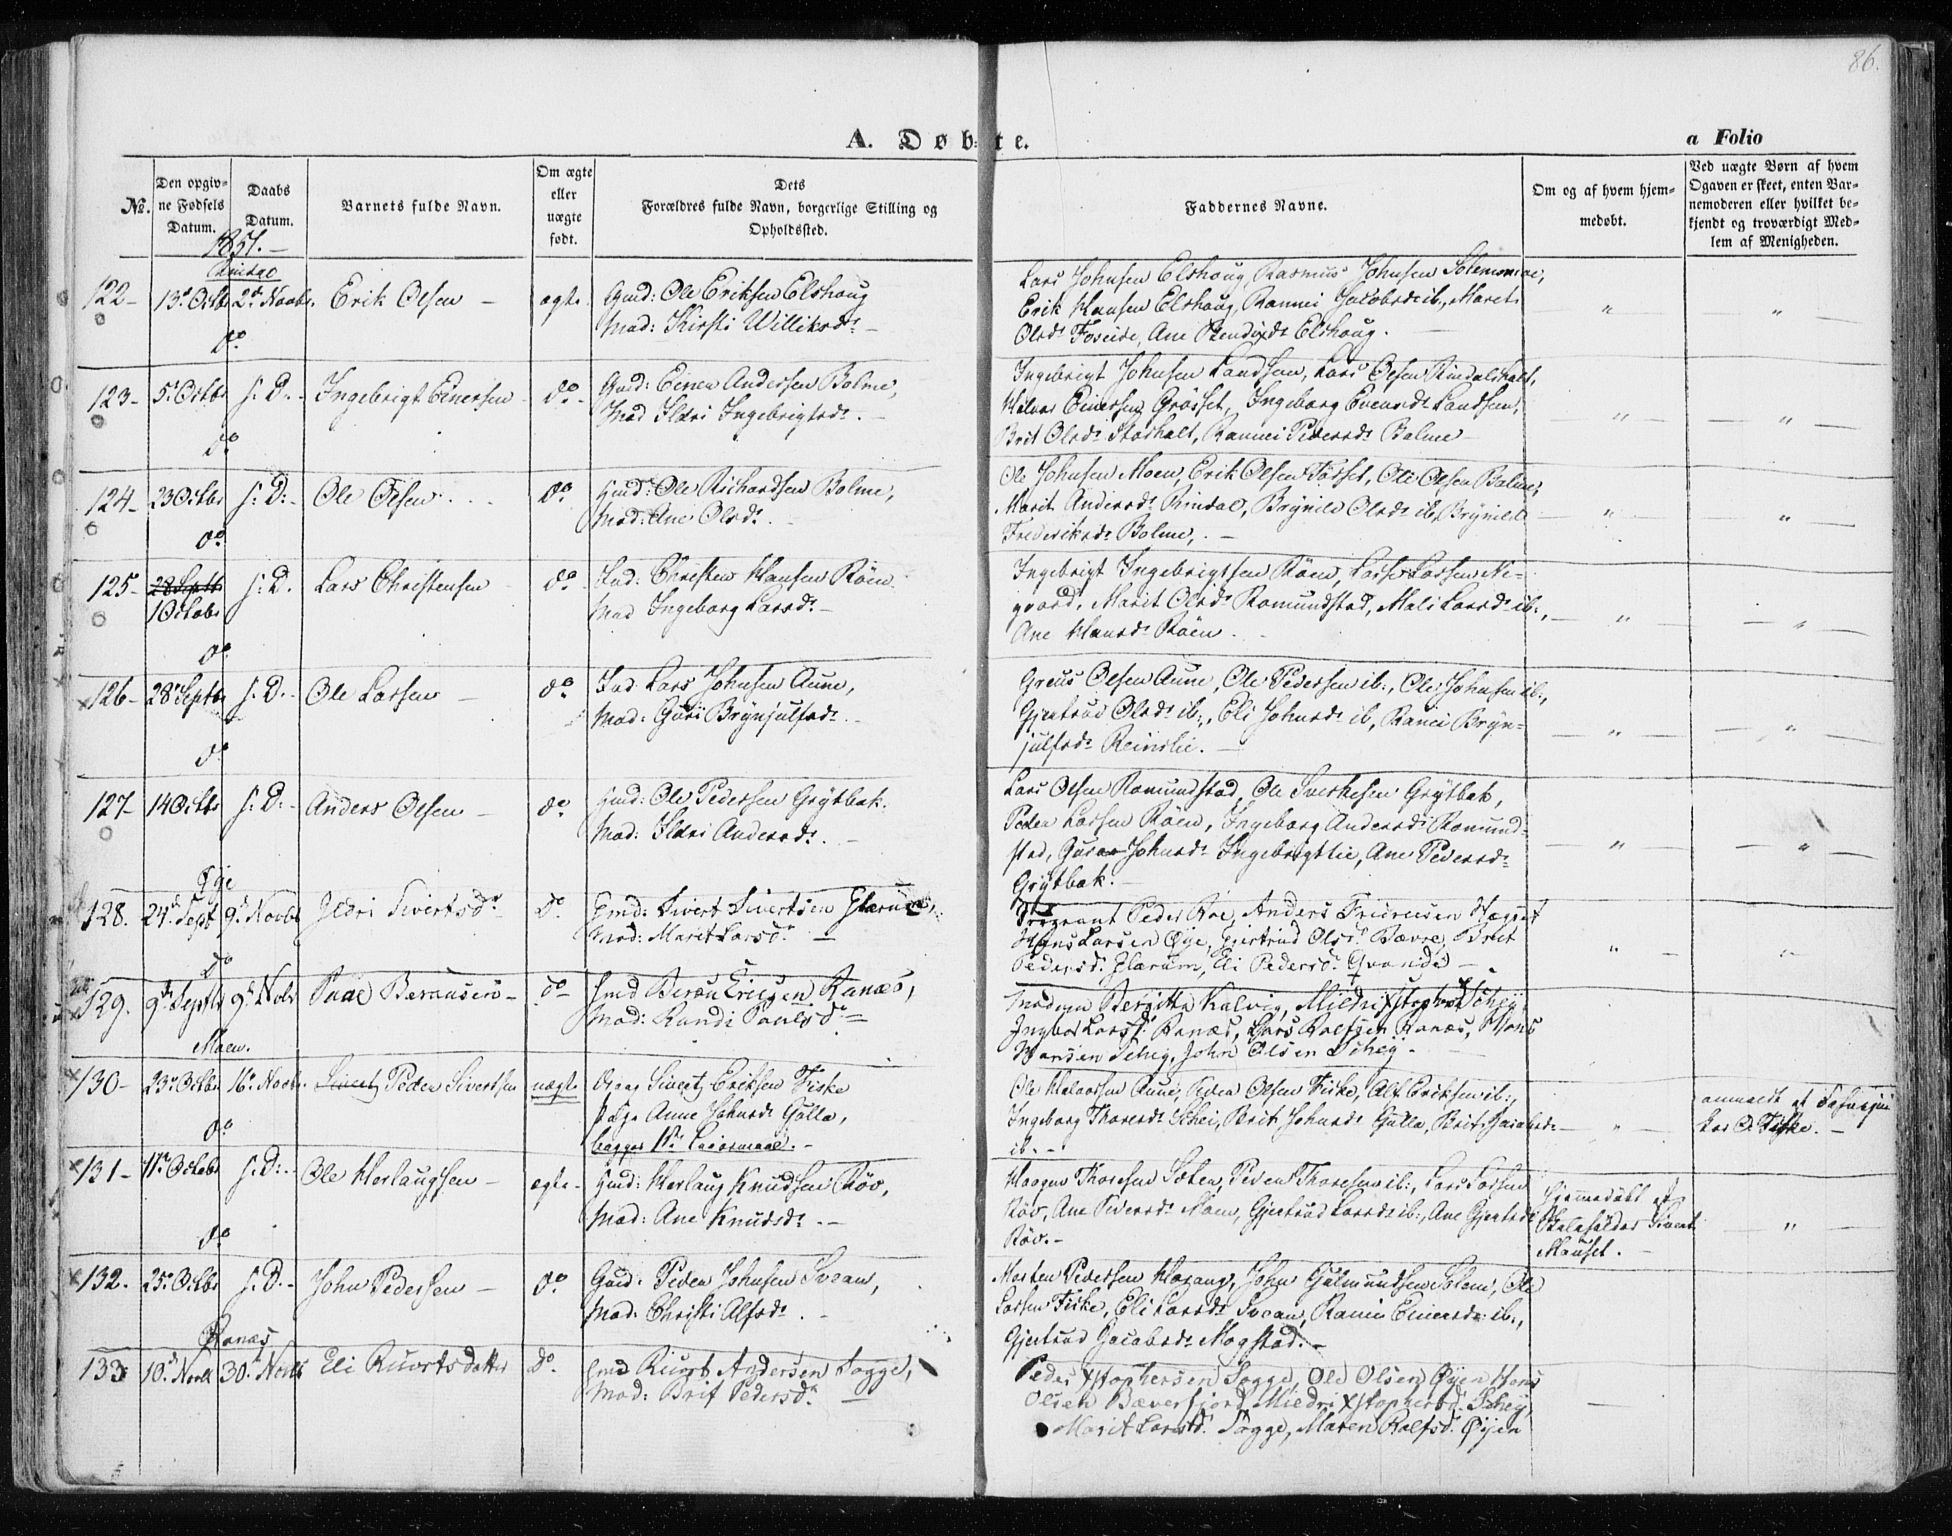 86.
A. Døbte.
a Folio
No.
Den opgivne Fødsels Datum.
Daabs Datum.
Barnets fulde Navn.
Om ægte eller uægte født.
Dets Forældres fulde Navn, borgerlige Stilling og Opholdssted.
Faddernes Navne.
Om og af hvem hjemmedøbt.
Ved uægte Børn af hvem Opgaven er skeet, enten Barnemoderen eller hvilket bekjendt og troværdigt Medlem af Menigheden.
1851.
122 13de Octbr 2den Novbr. Erik Olsen ægte Gmd: Ole Eriksen Elshoug
Mod: Kirsti Williksdr
Lars Johnsen Elshoug, Rasmus Johnsen
Erik Hansen Elshoug, Rannei Jacobsdr ib., Marit
Olsdr Foseide, Ane Elshoug.
do
123 5te Octbr s: D. Ingebrigt Einersen do Gmd: Einer Andersen Bolme,
Mod Ildri Ingebrigtsdr.
Ingebrigt Johnsen Landsem, Lars Olsen Rindalshalt,
Halvor Einersen Grøsset, Ingeborg Landsem,
Brit Olsdr Storhalt, Rannei Pedersdr Bolme
do
124 23 Octbr s: D: Ole Olsen do Ole Richardsen Bolme,
Mod: Ane Olsdr.
Ole Johnsen Moen, Erik Olsen Fosset, Ole Olsen Bolme,
Marit Andersdr Rindal, Brynild Olsdr ib, Brynild
Frederiksdr Bolme,
do
125 28 Septb 1 Octobr s: D. Lars Christensen do Ind: Christen Hansen Røen
Mod Ingeborg Larsdr
Ingebrigt Ingebrigtsen Røen, Lars Larsen Ne-
gaard, Marit Olsdr Romundstad, Mali Larsdr ib:,
Ane Hansdr Røen.
do
126 28 Septbr s: D. Ole Larsen do Ind: Lars Johnsen Aune,
Mod: Guri Brynjulfsdr
Olsen Aune, Ole Pedersen ib:, Ole Johnsen ib:,
Gjertrud Olsdr ib:, Eli Johnsdr ib, Ranei Bryn-
julfsdr Reinslie.
do
127 14 Octbr s: D: Anders Olsen do Ole Pedersen Grytbak.
Mod: Ildri Andersdr.
Lars Olsen Romundstad, Ole Sverkesen Grytbak,
Peder Larsen Røen, Ingeborg Andersdr Romund-
stad, Johnsdr Ingebrigtlie, Ane Pedersdr
Grytbak.
Øye
128. 24de Sept 9de Novbr Ildri Sivertsdr do Gmd: Sivert Sivertsen Glærum,
Mod: Marit Larsdr
Peder Roe, Anders
Larsen Øye, Gjertrud Olsdr Bævre, Brit
Pedersdr Glærum, Eli Pedersdr Qvande
do
129. 9de Septbr 9de Novbr do
Mod: Randi Paulsdr
Madam Bergitte Kalvig, Mildri Xstophersdr Schey
Ingbor Larsdr Ranæs, Lars Rolfsen Ranæs, Hans
Hansen Schey, John Olsen Schey
Moen.
130 23de Octbr 16de Novbr. Sivert Peder Sivertsen uægte Sivert Eriksen Fiske
Pige Anne Johnsdr Gulla,
begges 1ste Leiermaal.
Ole Halvorsen Aune, Peder Olsen Fiske, Alf Eriksen ib:,
Ingeborg Thoresdr Schei, Brit Johnsdr Gulla, Brit Jacobsdr
ib.
anmeldt af
Lars O. Fiske.
do
131 11te Octobr s: D: Ole Herlaugsen ægte Gmd: Herlaug Knudsen Røv,
Mod: Ane Knudsdr.
Haagen Thoresen Sæter, Peder Thoresen ib:, Lars Larsen
Røv, Ane Pedersdr Moen, Gjertrud Larsdr ib:, Ane
Røv.
Hjemmedøbt af
Skoleholder Sivert
Mauset.
do
132. 25de Octbr s: D. John Pedersen do Gmd: Peder Johnsen Svean,
Mod: Christi Alfsdr.
Morten Pedersen Hagang, John Gulmundsen Solem, Ole
Larsen Fiske, Eli Larsdr Svean, Rannei Einersdr ib:,
Gjertrud Jacobsdr Mogstad.
Ranæs
133 10de Novb 30te Novbr Eli Siurtsdatter do Gmd Siurt Andersen Sogge,
Mod: Brit Pedersdr
Peder Xstophersen Sogge, Ole Olsen Øyen Hans
Olsen Bæverfjord, Mildri Xstophersdr Schey,
Marit Larsdr Sogge, Maren Rolfsdr Øyen